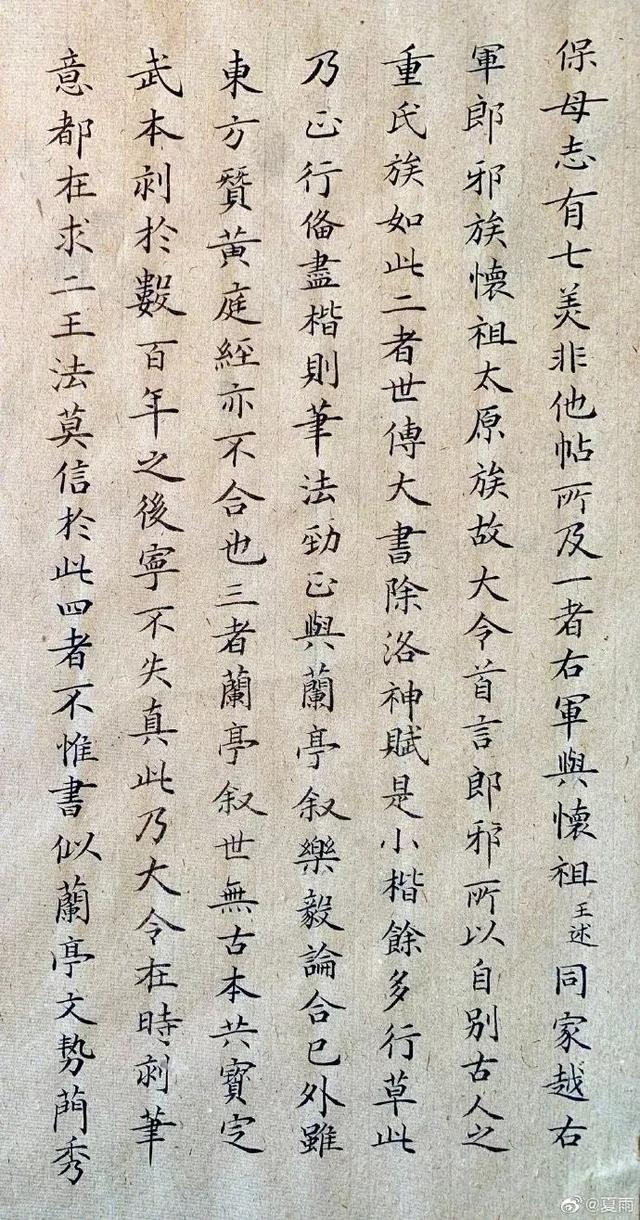 保母志有七美非他帖所及一者右軍與懷祖王述同家越右
軍郎邪族懷祖太原族故大令首言郎邪所以自别古人之
重氏族如此二者世傳大書除洛神賦是小楷餘多行草此
乃正行俻盡楷則筆法勁正與蘭亭叙樂毅論合已外雖
東方贊黄庭經亦不合也三者蘭亭叙世無古本共寳定
武本刻於數百年之後寧不失真此乃大令在時刻筆
意都在求二王法莫信於此四者不惟書似蘭亭文勢蕳秀
@夏雨